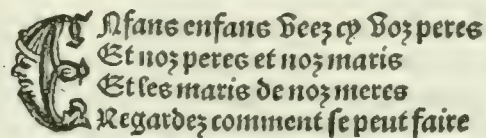 ENfans enfans veez cy voz peres
Et noz peres et noz maris
Et les maris de noz meres
Regardez comment se peut faire